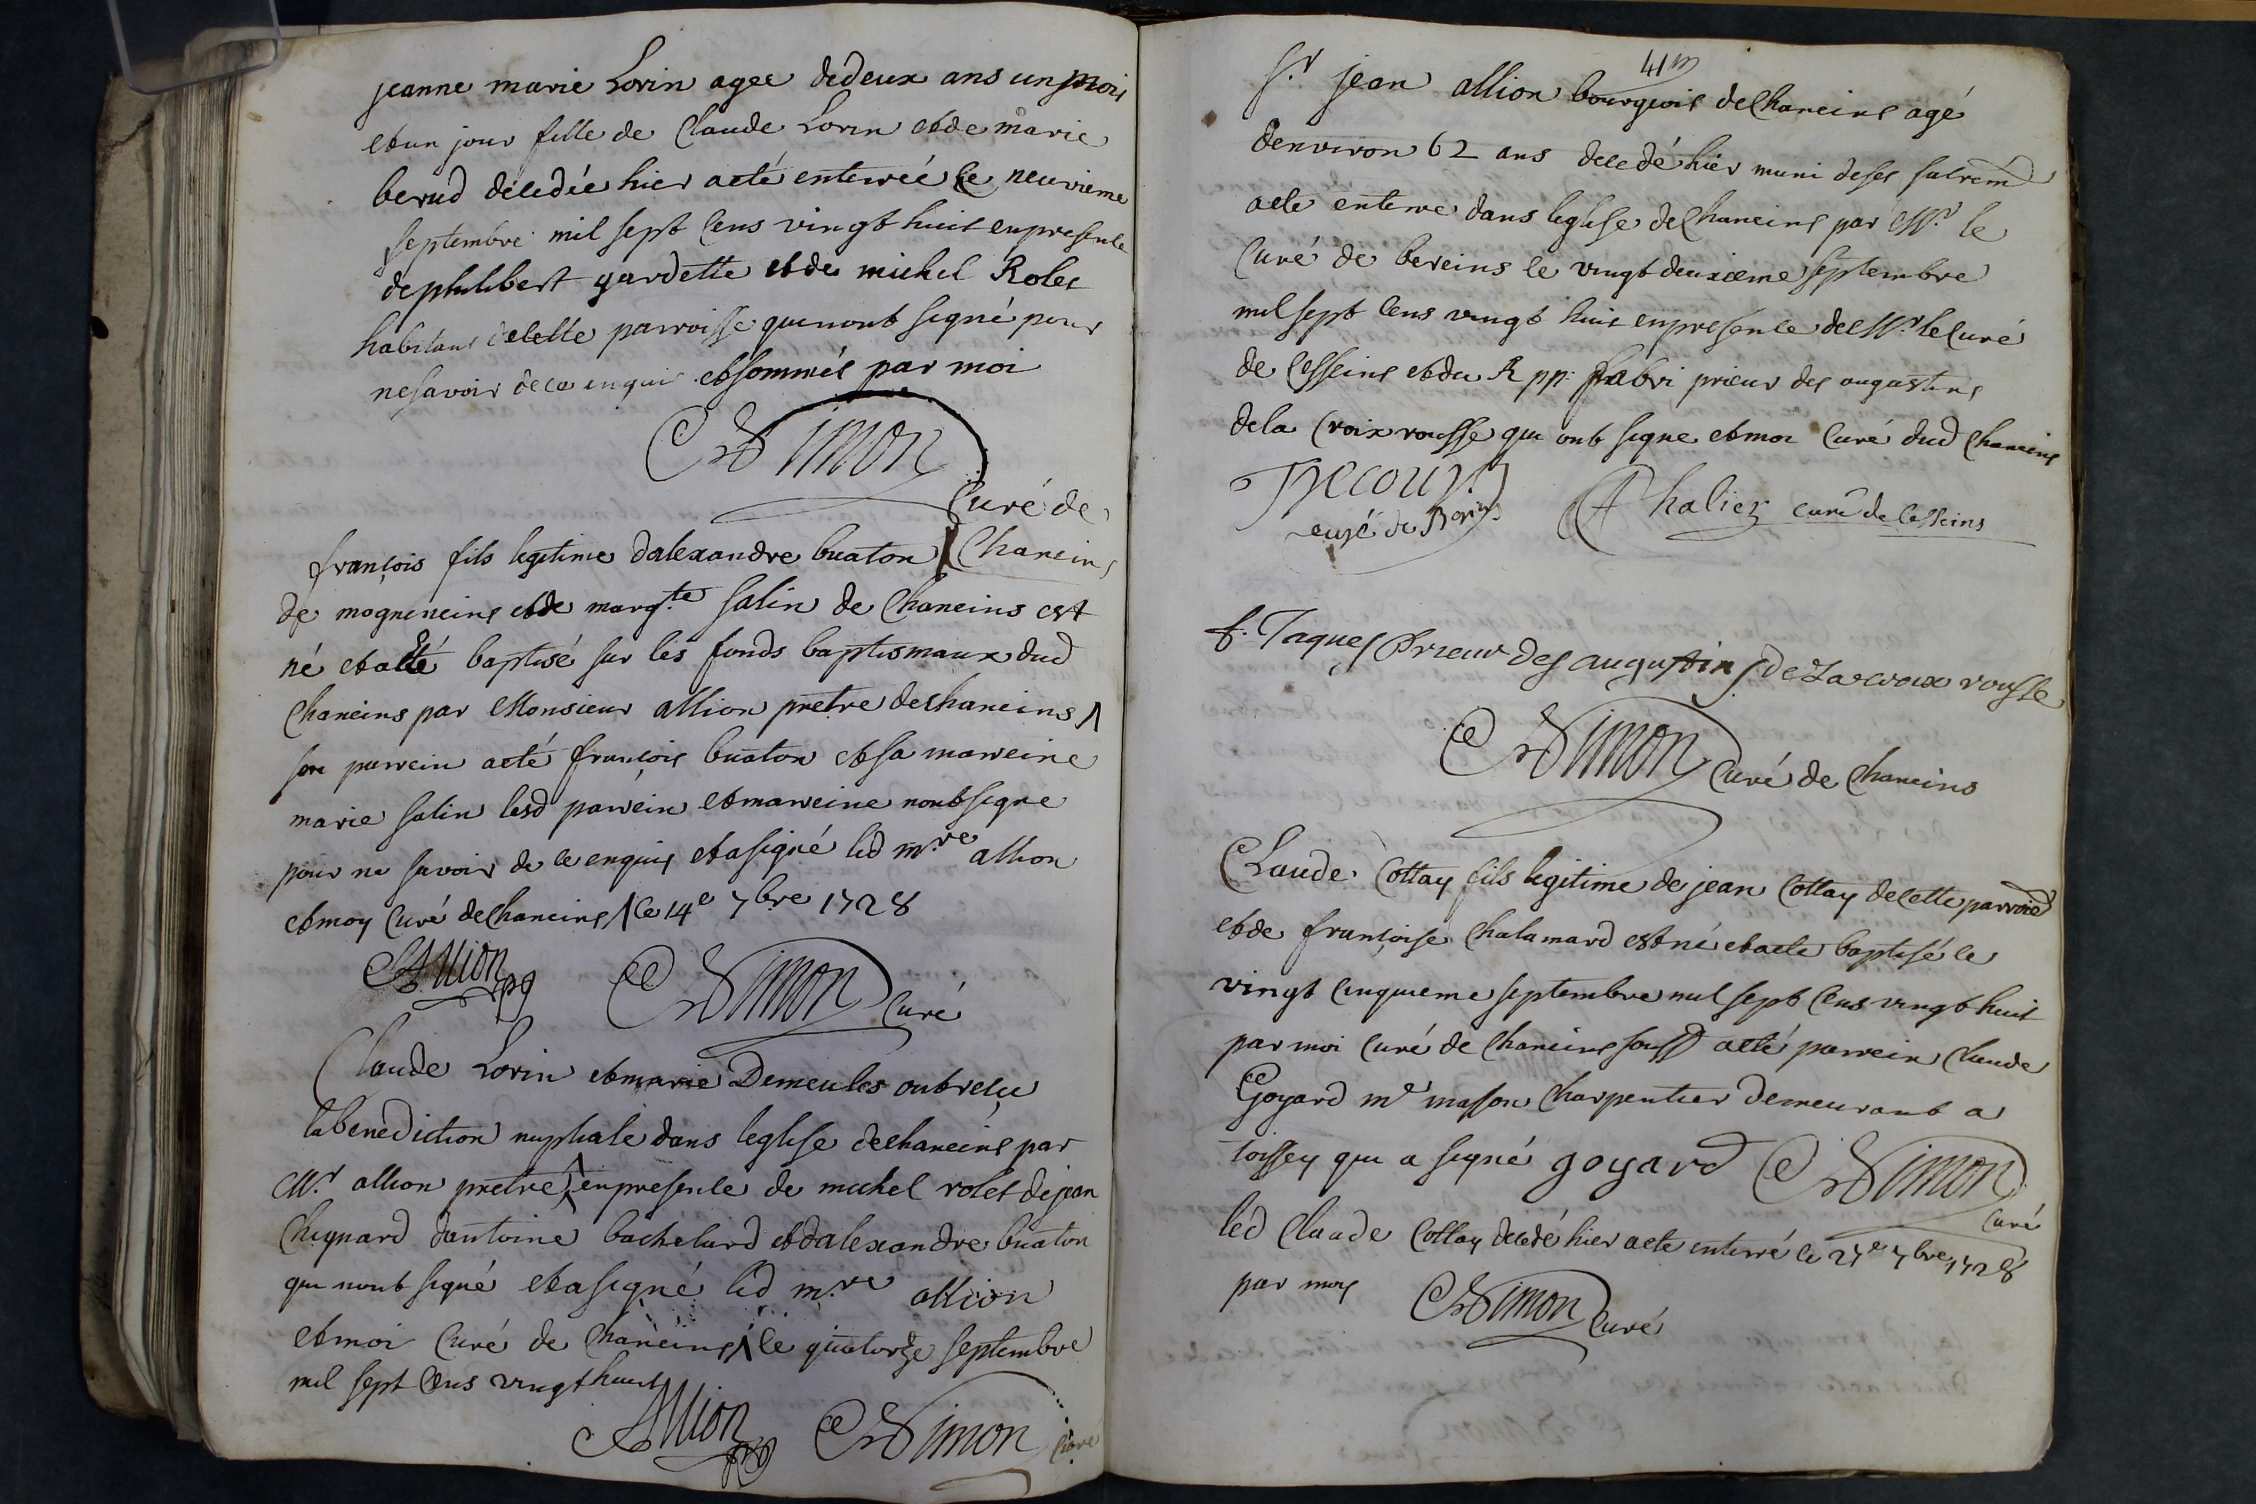 jeanne marie Lorin agee dedeux ans un mois
et un jour fille de Claude Lorin et de marie
berud décedée hier a eté enterrée le neuvieme
septembre mil sept cens vingt huit en presence
de philibert gardette et de michel Rolet
habitans de cette parroisse qui n'ont signé pour
ne savoir de ce enquis et sommés par moi
Simon
Curé de
Chaneins
françois fils legitime dalexandre buaton
de mogneneins et de margte salin de Chaneins est
né et a eté baptisé sur les fonds baptismaux dud
Chaneins par Monsieur allion pretre de chaneins
son parrein a eté françois buaton et sa marreine
marie salin lesd parrein et marreine n'ont signe
pour ne savoir de ce enquis et a signé led mre allion
et moy Curé de Chaneins le 14e 7bre 1728
Allion Simon Curé
Claude Lorin et marie Demeules ont reçu
la benediction nuptiale dans leglise de chaneins par
Mr allion pretre en presence de michel rolet de jean
Chignard dantoine bachelard et dalexandre buaton
qui n'ont signé et a signé led mre allion
et moi Curé de Chaneins le quatorze septembre
mil sept cens vingt huit
Allion Simon Curé
41
Sr jean allion bourgeois de Chaneins agé
denviron 62 ans decedé hier muni de ses sacremd
a ete enterre dans leglise de Chaneins par Mr le
Curé de bereins le vingt deuxieme septembre
mil sept cens vingt huit en presence de Mr le Curé
de Cesseins et du R pp: fabri prieur des augustins
de la Croix rousse qui ont signe et moi Curé dud Chaneins
curé de Chalier curé de Cesseins
f. Jaques Prieur des augustins de La croix rousse
Simon Curé de Chaneins
Claude Cottay fils legitime de jean Cottay de cette parroisse
et de françoise Chalamard est né et a ete baptisé le
vingt cinquieme septembre mil sept cens vingt huit
par moi Curé de Chaneins soussd a eté parrein Claude
Goyard me masson Charpentier demeurant a
toissey qui a signé goyard Simon
Curé
led Claude Cottay decedé hier a ete enterré le 27e 7bre 1728
par moy Simon Curé